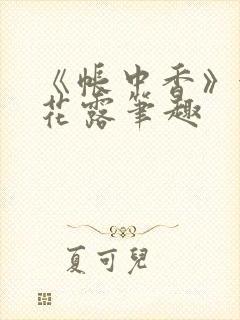 《帐中香》
花露笔趣
夏可儿